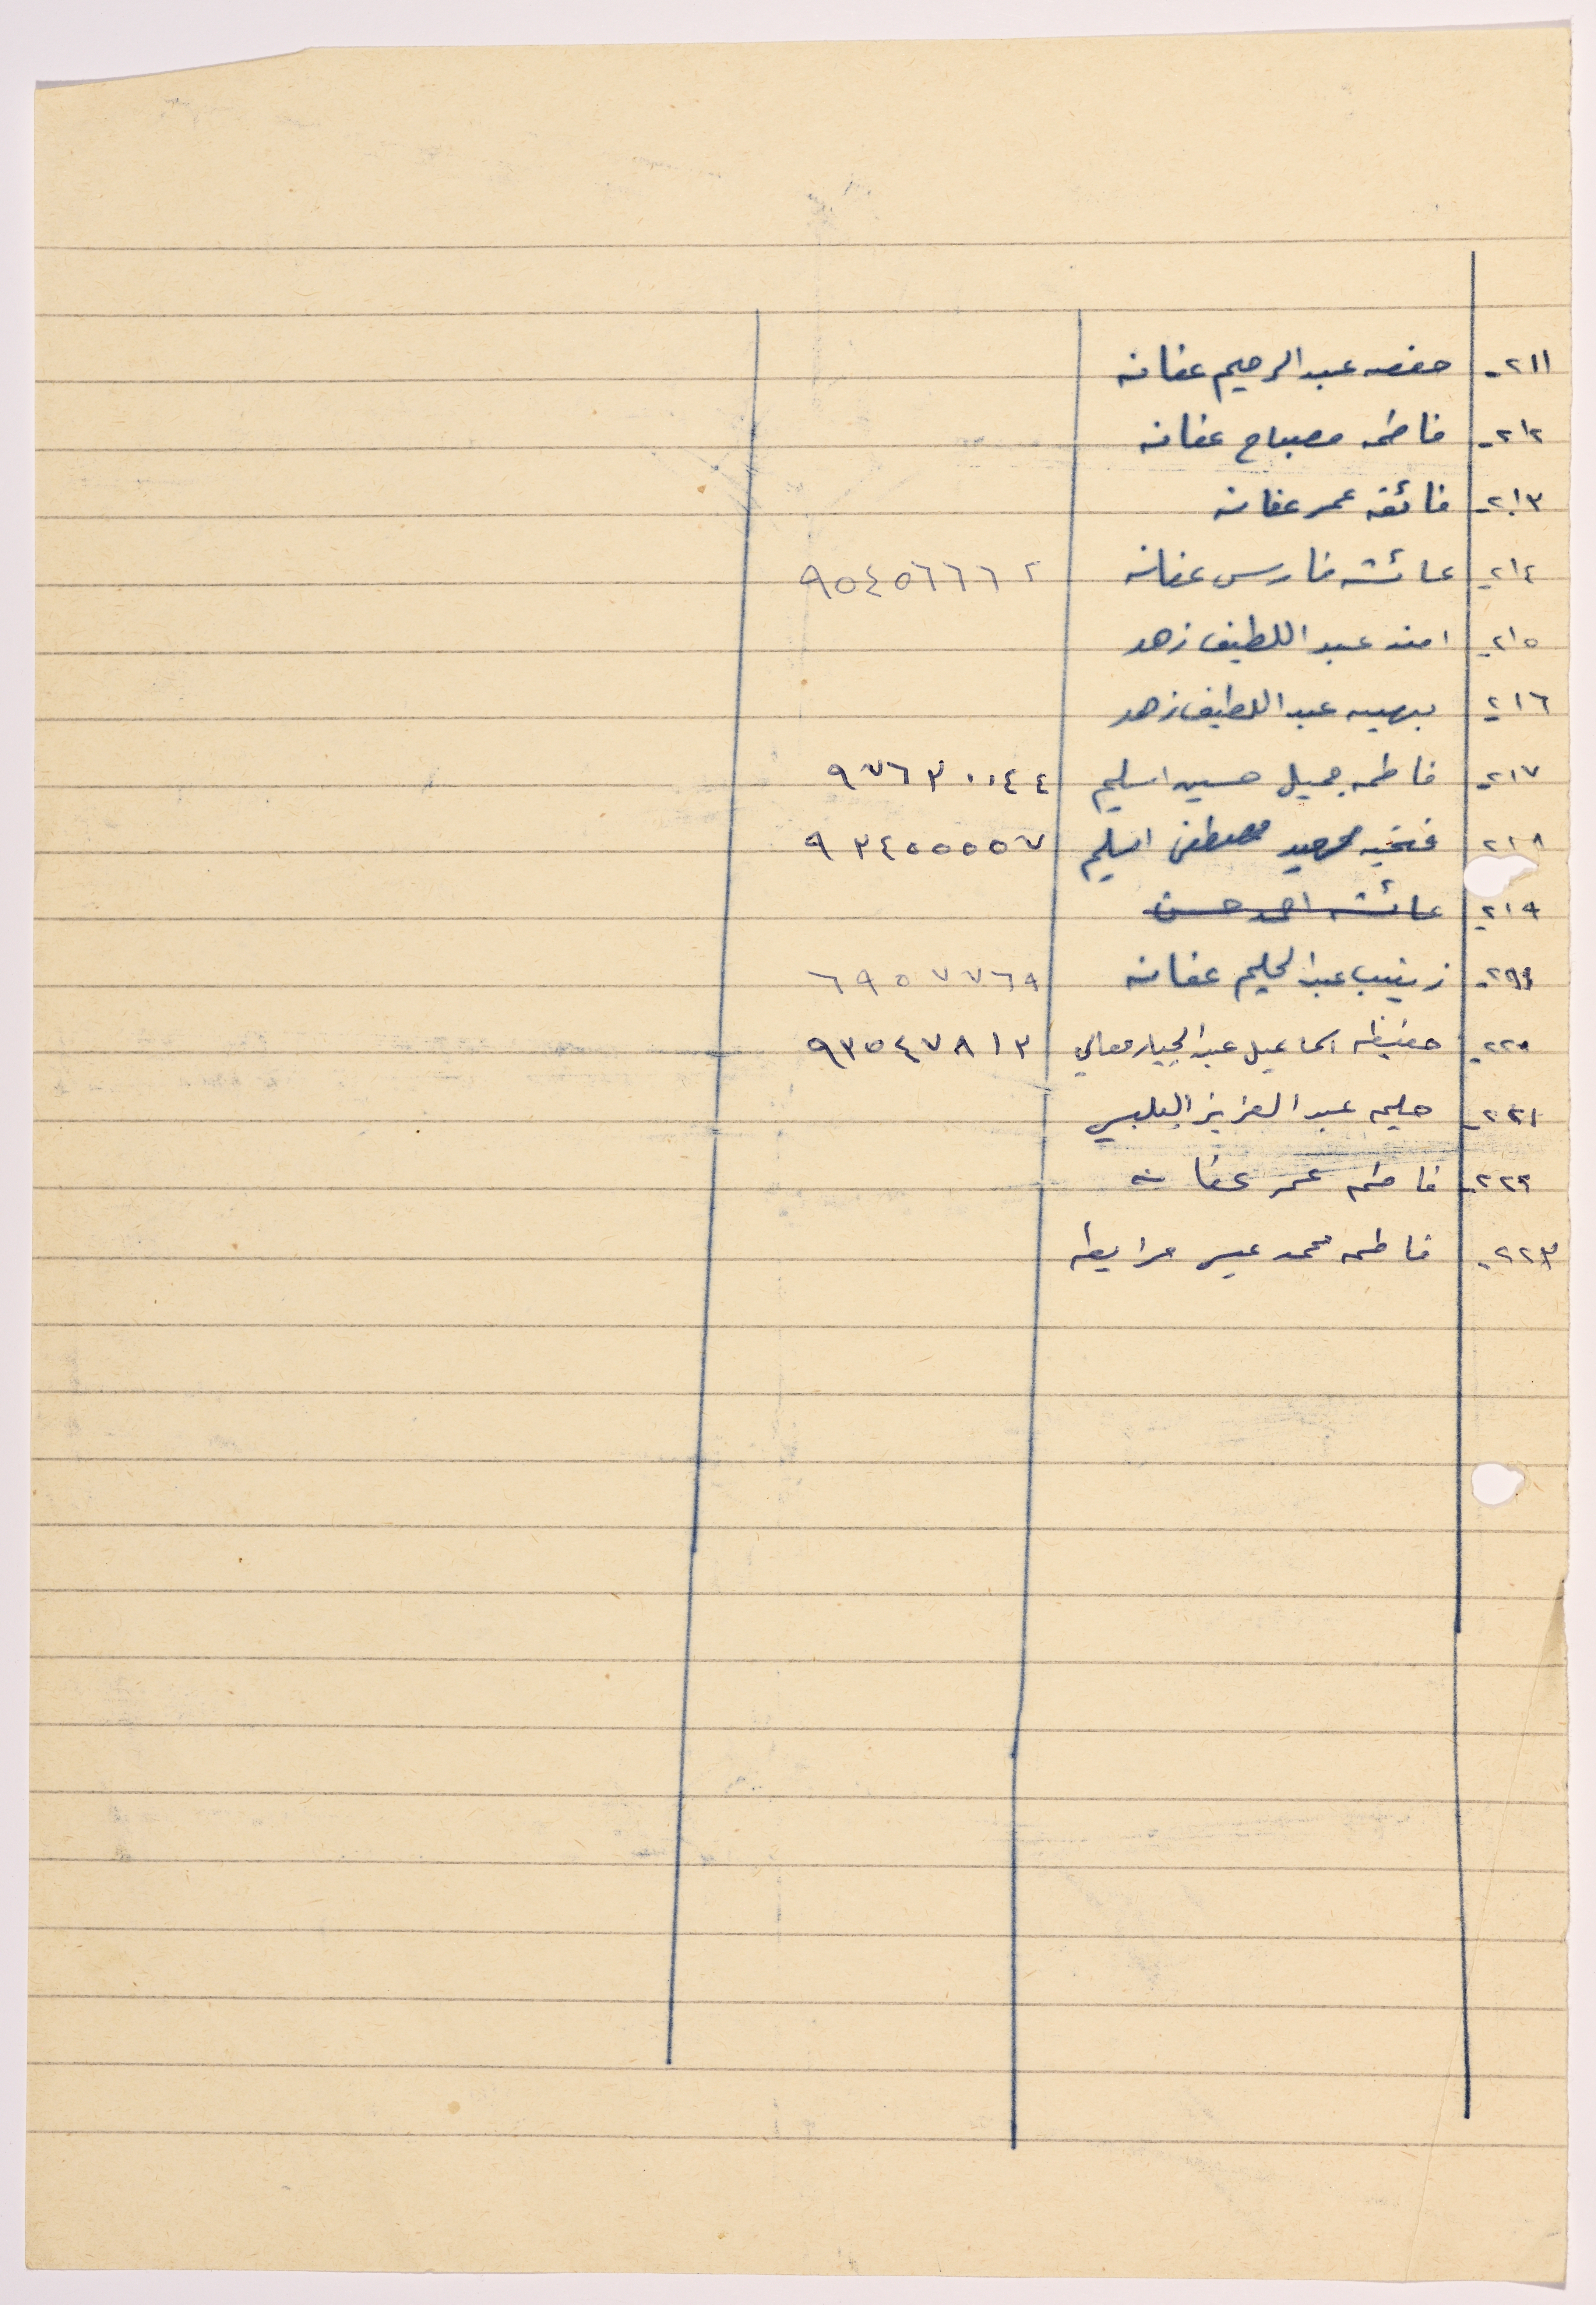 ٢١١- حفصه عبد الرحيم عفانه
٢١٢- فاطمه مصباح عفانه
٢١٣- فائقه عمر عفانه
٢١٤- عائشه فارس عفانه ٩٥٤٥٦٦٦٢
٢١٥- امنه عبد اللطيف زهد
٢١٦- بهيه عبد اللطيف زهد
٢١٧- فاطمه جميل حسين اسليم ٩٧٦٣٠٠٤٤
٢١٨ فتحيه مصطفى اسليم ٩٣٤٥٥٥٥٧
٢١٩- عائشه احمد حسن
زينب عبد الحليم عفانه ٦٩٥٧٧٦٩
٢٢٠- حفيظه اسماعيل عبد الجبار معالي ٩٣٥٤٧٨١٣
٢٢١- حليمه عبد العزيز البلبيسي
٢٢٢- فاطمه عمر عفانه
٢٢٣- فاطمه محمد عيسى مرابطه